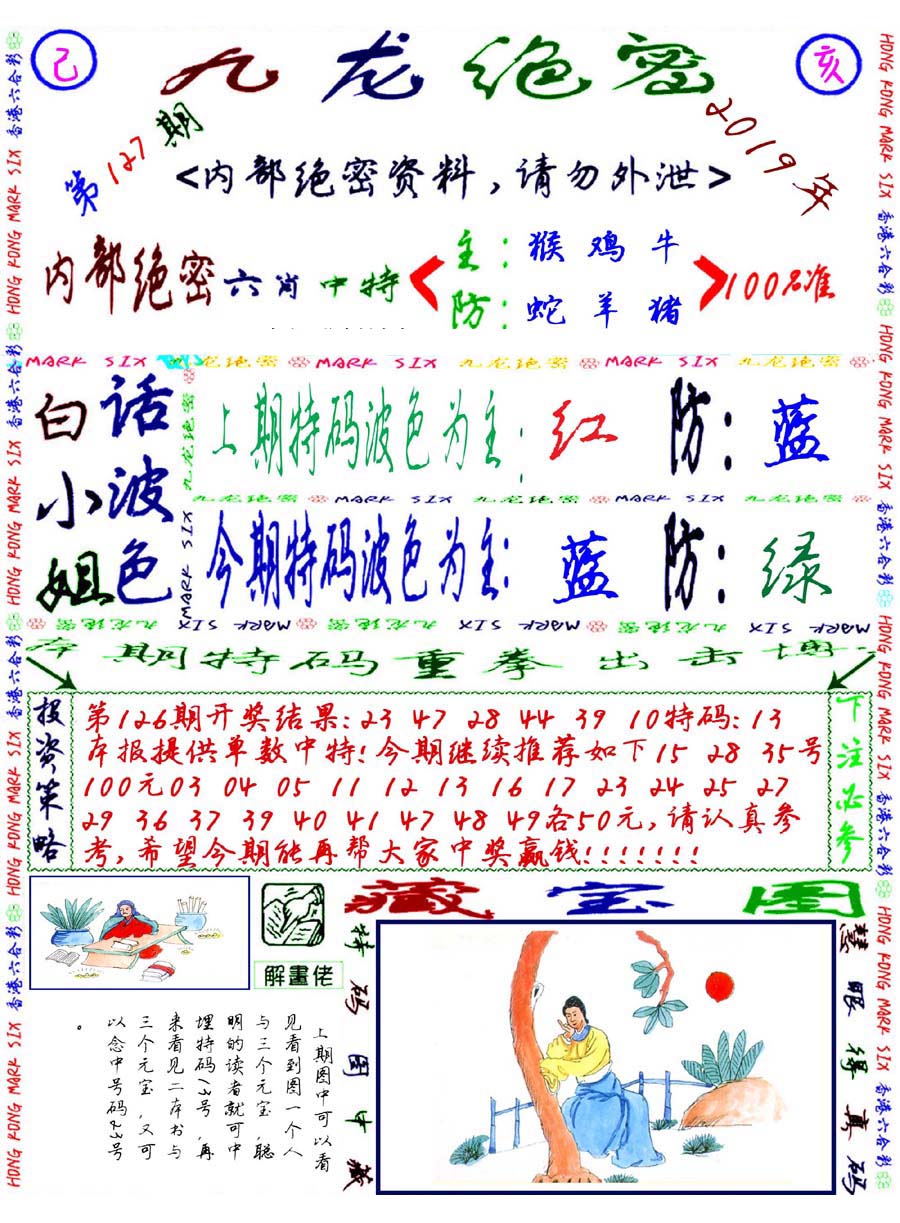 己
九龙绝密
亥
第127期
2019年
<内部绝密资料,请勿外泄>
内部绝密六肖中特
主:猴鸡牛
防:蛇羊猪
100%准
MARK SIX 九龙绝密 MARK SIX 九龙绝密 MARK SIX 九龙绝密
白话
小波
姐色
上期特码波色为主:红 防:蓝
九龙绝密 MARK SIX 九龙绝密 MARK SIX 九龙绝密
今期特码波色为主:蓝 防:绿
九龙绝密 MARK SIX
MARK SIX 九龙绝密 MARK SIX 九龙绝密 MARK SIX 九龙绝密
期特码重拳出击
投资策略
第126期开奖结果:23 47 28 44 39 10特码:13
本报提供单数中特!今期继续推荐如下15 28 35号
100元03 04 05 11 12 13 16 17 23 24 25 27
29 36 37 39 40 41 47 48 49各50元,请认真参
考,希望今期能再帮大家中奖赢钱!!!!!!!
下注必参
藏宝图
解畫佬
特码图中藏
慧眼得真码
上期图中可以看
见看到图一个人
与三个元宝,聪
明的读者就可中
埋特码13号,再
来看见二本书与
三个元宝,又可
以念中号码23号
。
HONG KONG MARK SIX 香港六合彩 HONG KONG MARK SIX 香港六合彩 HONG KONG MARK SIX 香港六合彩 HONG KONG MARK SIX 香港六合彩
HONG KONG MARK SIX 香港六合彩 HONG KONG MARK SIX 香港六合彩 HONG KONG MARK SIX 香港六合彩 HONG KONG MARK SIX 香港六合彩